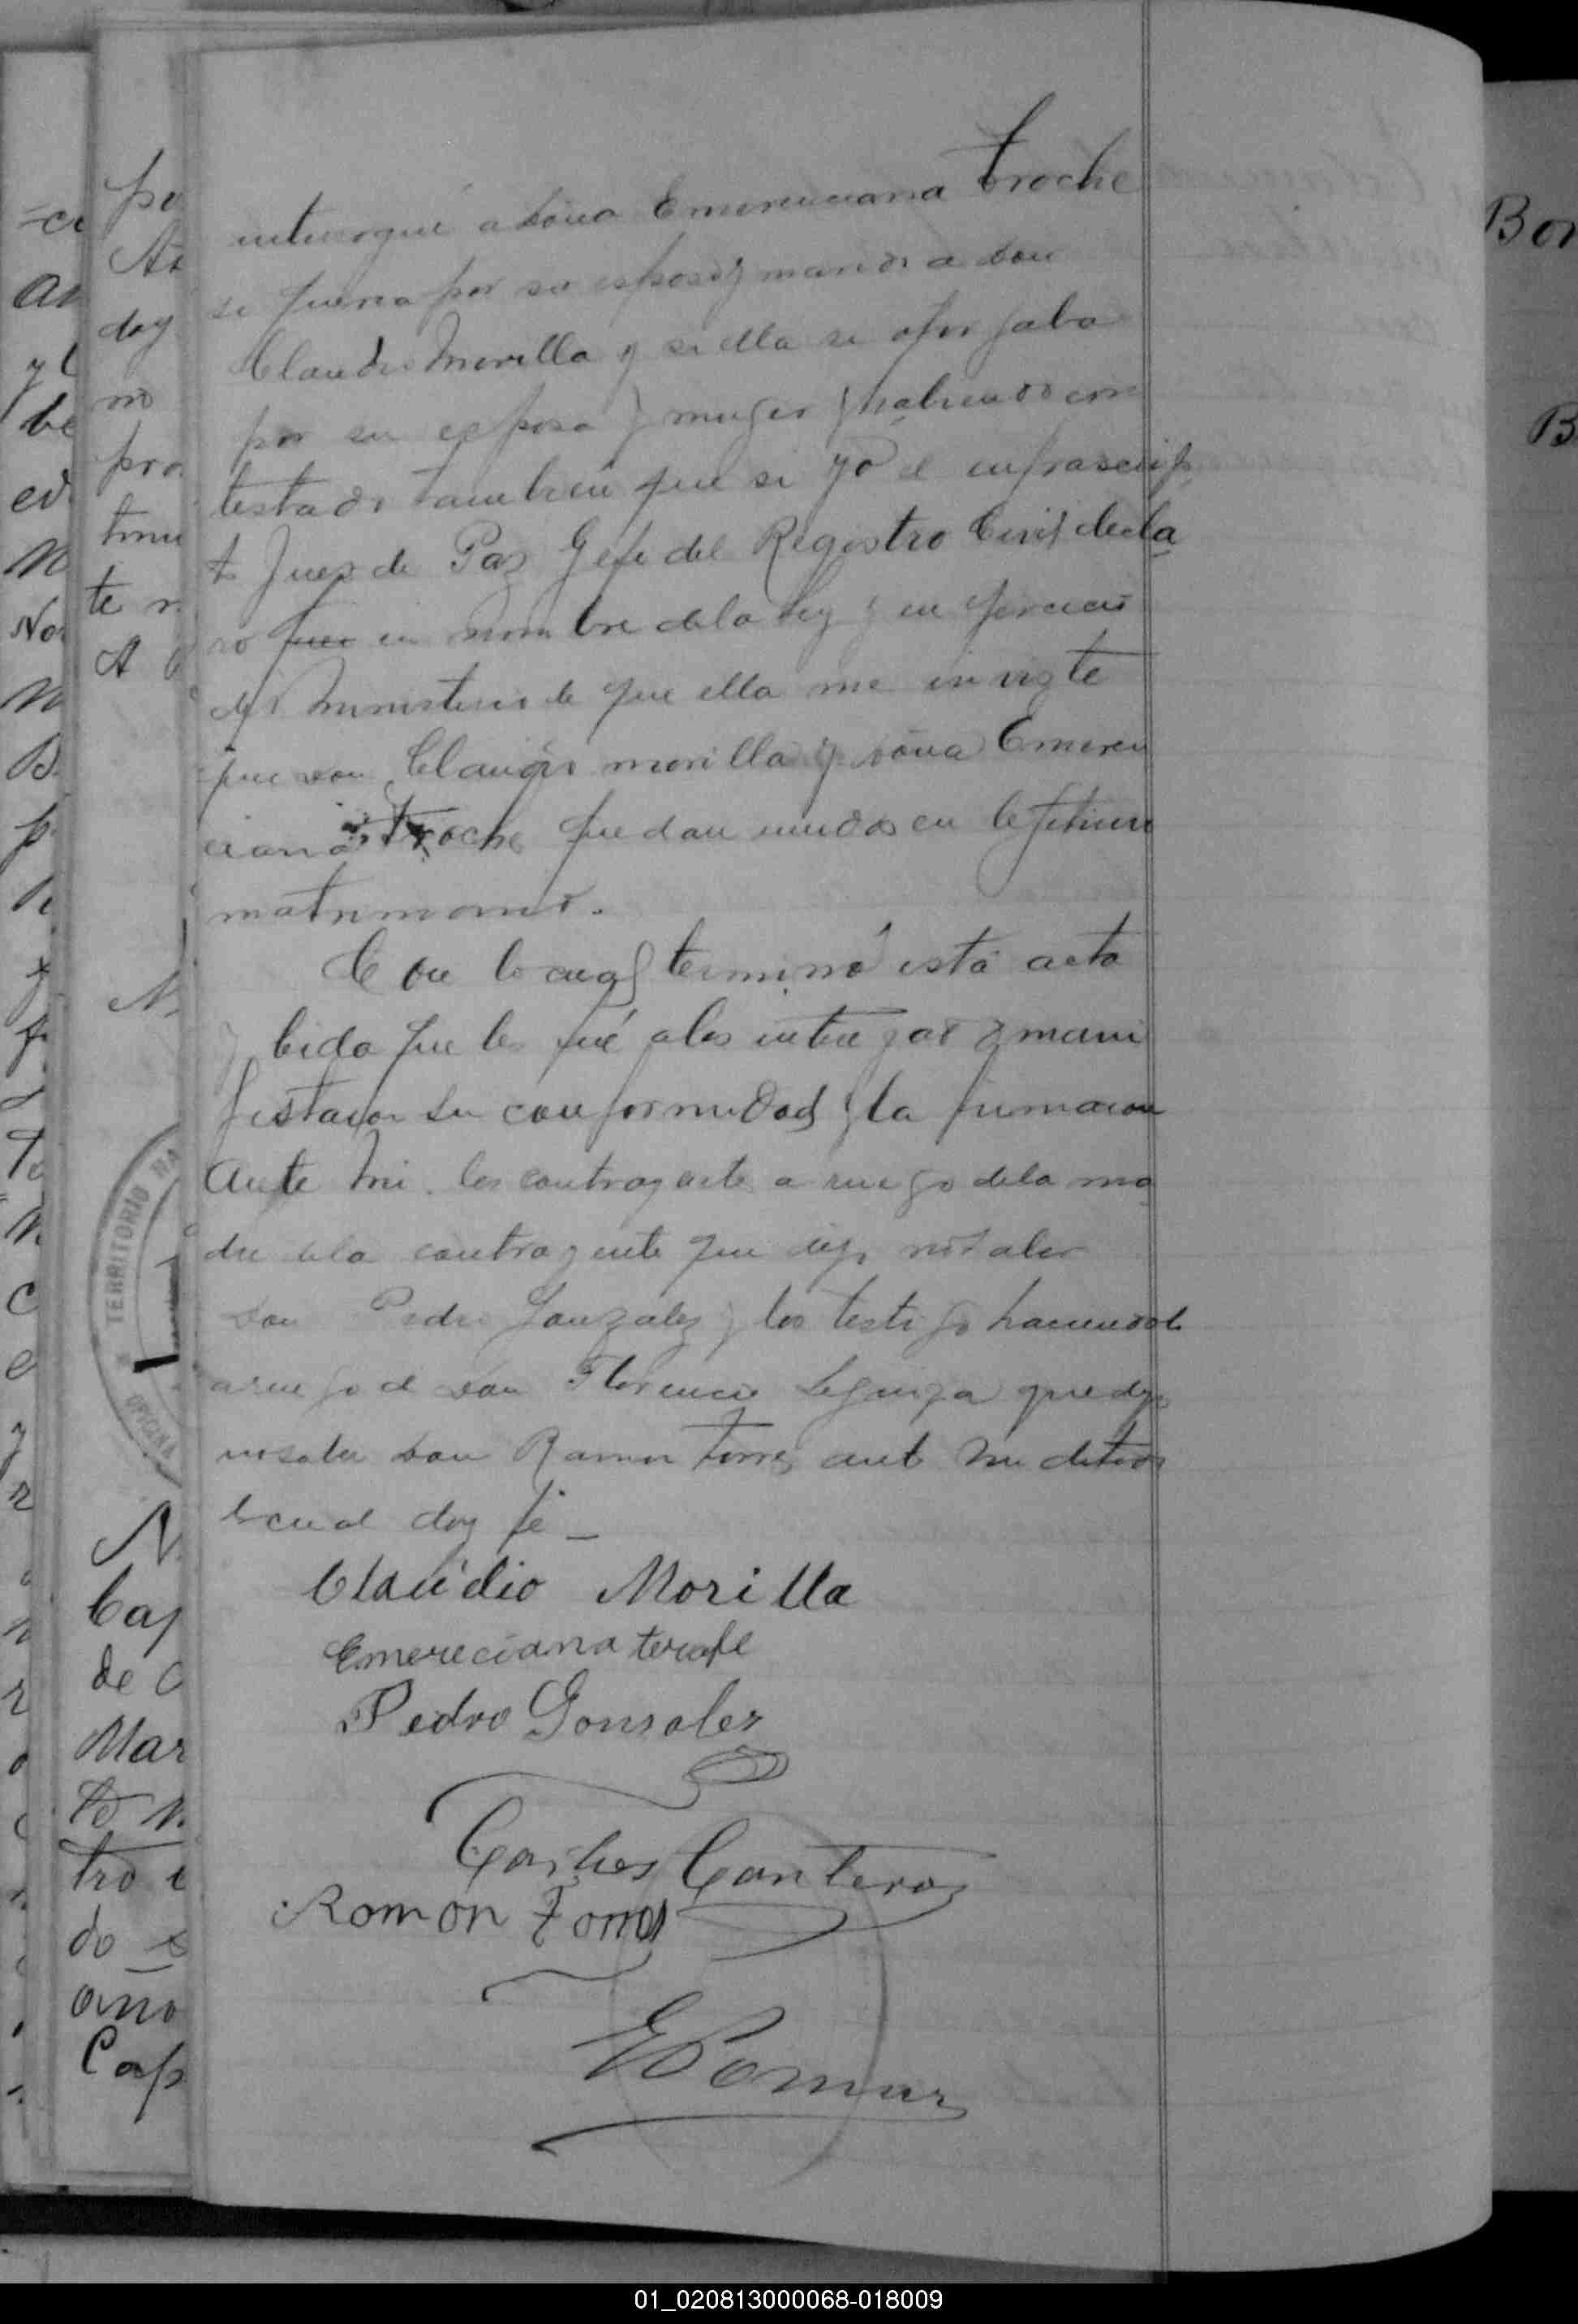 interrogué a doña Emerenciana Troche
si queria por su esposo y marido a don
Claudio Morilla y si ella se otorgaba
por su esposa y muger y habiendo con
testado tambien que si yo el infrascrip
to Juez de Paz Gefe del Registro Civil decla
ro en nombre de la Ley y en ejercicio
del ministerio de que ella me inviste
que don Claudio morilla y doña Emeren
ciana Troche quedan unidos en lejitimo
matrimonio.
Con lo cual terminó esta acta
y leida que les fué a los interezados mani
festaron su conformidad y la firmaron
ante mi los contrayente a ruego de la ma
dre de la contrayente que dijo no saber
don Pedro Gonzalez y los testigo haciendolo
a ruego de don Florencio Leguiza que dijo
no saber don Ramon Torres ante mi de todo
lo cual doy fé _
Claudio Morilla
Emereciana
Pedro Gonsales
Carlos Canteros
Romon Torres
po
doy
no
pro
te n
TERRITORIO NA
OFICINA
N
Cap
de C
Mar
to n
tro
do
año
Cap
Bor
B
01_020813000068-018009